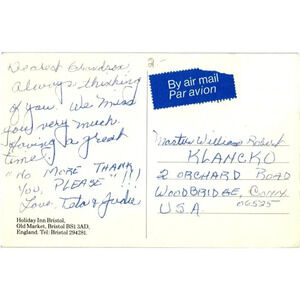 2-
Dearest Grandson,
Always thinking
of you. We miss
you very much.
Having a great
time!
"NO MORE THANK
YOU, PLEASE"!!!
Love,
Holiday Inn Bristol,
Old Market, Bristol BS1 3AD,
England. Tel: Bristol 294281.
By air mail
Par avion
Master William Robert
KLANCKO
2 ORCHARD ROAD
WOODBRIDGE, CONN.
06525
U.S.A.